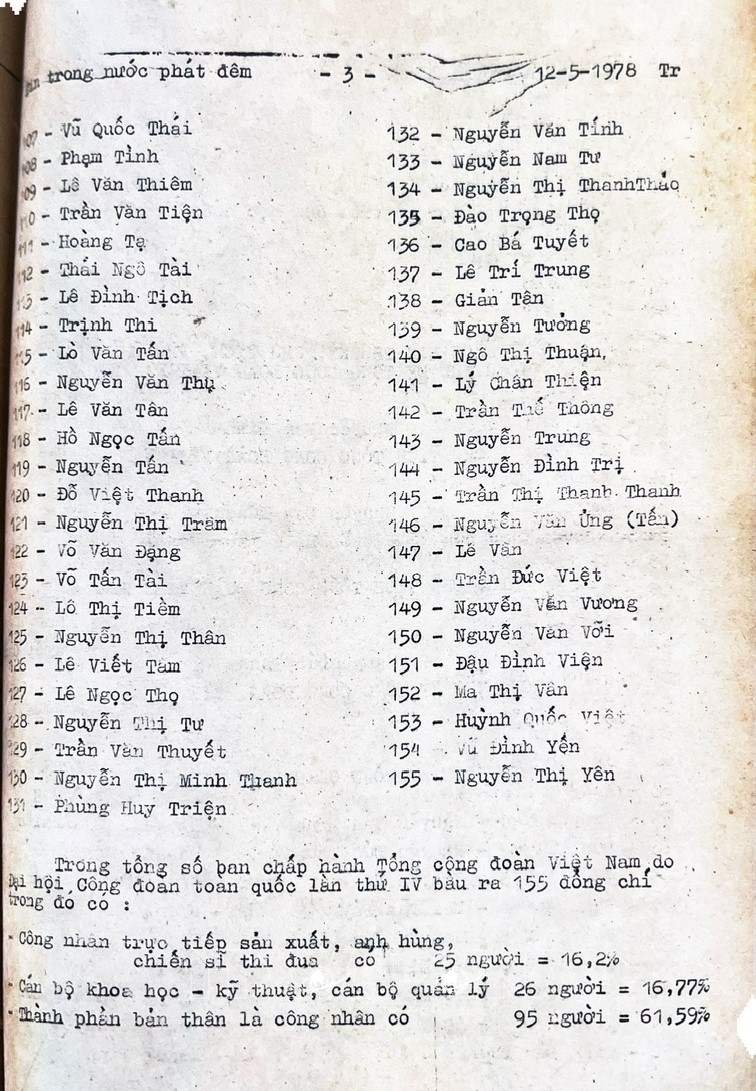 tin trong nước phát đêm - 3 - 12-5-1978 Tr
107 - Vũ Quốc Thái
108 - Phạm Tình
109 - Lê Văn Thiêm
110 - Trần Văn Tiện
111 - Hoàng Tạ
112 - Thái Ngô Tài
113 - Lê Đình Tịch
114 - Trịnh Thi
115 - Lò Văn Tấn
116 - Nguyễn Văn Thụ
117 - Lê Văn Tân
118 - Hồ Ngọc Tấn
119 - Nguyễn Tấn
120 - Đỗ Việt Thanh
121 - Nguyễn Thị Trâm
122 - Võ Văn Đặng
123 - Võ Tấn Tài
124 - Lô Thị Tiềm
125 - Nguyễn Thị Thân
126 - Lê Viết Tâm
127 - Lê Ngọc Thọ
128 - Nguyễn Thị Tư
129 - Trần Văn Thuyết
130 - Nguyễn Thị Minh Thanh
131 - Phùng Huy Triện
132 - Nguyễn Văn Tính
133 - Nguyễn Nam Tư
134 - Nguyễn Thị ThanhThảo
135 - Đào Trọng Thọ
136 - Cao Bá Tuyết
137 - Lê Trí Trung
138 - Giản Tân
139 - Nguyễn Tưởng
140 - Ngô Thị Thuận,
141 - Lý Chân Thiện
142 - Trần Thế Thông
143 - Nguyễn Trung
144 - Nguyễn Đình Trị
145 - Trần Thị Thanh Thanh
146 - Nguyễn Văn Ứng (Tấn)
147 - Lê Vân
148 - Trần Đức Việt
149 - Nguyễn Văn Vương
150 - Nguyễn Văn Vỡi
151 - Đậu Đình Viện
152 - Ma Thị Vân
153 - Huỳnh Quốc Việt
154 - Vũ Đình Yến
155 - Nguyễn Thị Yên
Trong tổng số ban chấp hành Tổng cộng đoàn Việt Nam do
Đại hội Công đoàn toan quốc lần thứ IV bầu ra 155 đồng chí
trong đó có :
- Công nhân trực tiếp sản xuất, anh hùng,
chiến sĩ thi đua có 25 người = 16,2%
- Cán bộ khoa học - kỹ thuật, cán bộ quản lý 26 người = 16,77%
- Thành phần bản thân là công nhân có 95 người = 61,59%